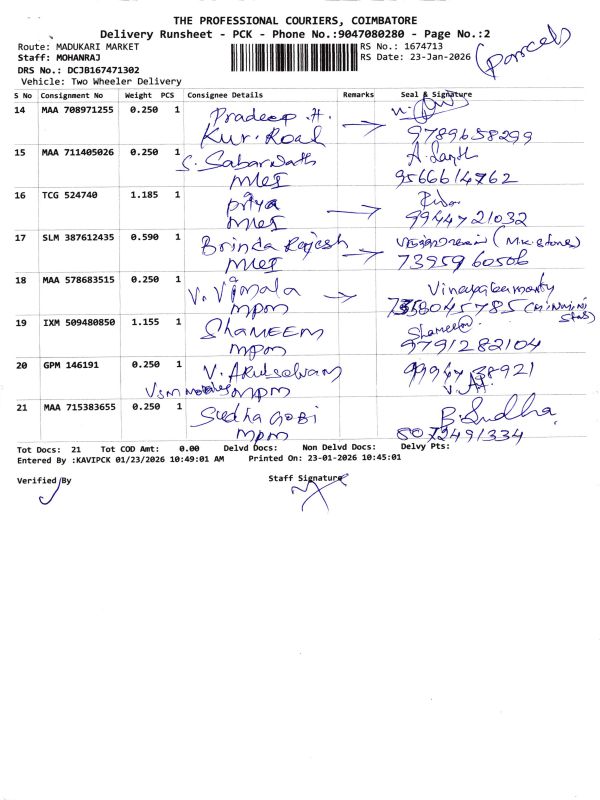 THE PROFESSIONAL COURIERS, COIMBATORE
Delivery Runsheet - PCK - Phone No.:9047080280 - Page No.:2
Route: MADUKARI MARKET RS No.: 1674713
Staff: MOHANRAJ RS Date: 23-Jan-2026 (Parcel)
DRS No.: DCJB167471302
Vehicle: Two Wheeler Delivery
S No Consignment No Weight PCS Consignee Details Remarks Seal & Signature
14 MAA 708971255 0.250 1 Pradeep .H.
Kur. Road 9789658299
15 MAA 711405026 0.250 1 S. Sabarinath
9566614762
16 TCG 524740 1.185 1 Priya
9944721032
17 SLM 387612435 0.590 1 Brinda Rajesh (MK stones)
7395960506
18 MAA 578683515 0.250 1 V. Vimala Vinayagamoorty
mpm 7358045785
19 IXM 509480850 1.155 1 SHAMEEM Shameem
mpm 9791282104
20 GPM 146191 0.250 1 V. Arulselvam 9994738921
VSM mpm V.
21 MAA 715383655 0.250 1 Sudha GOBI B. Sudha
mpm 8072491334
Tot Docs: 21 Tot COD Amt: 0.00 Delvd Docs: Non Delvd Docs: Delvy Pts:
Entered By :KAVIPCK 01/23/2026 10:49:01 AM Printed On: 23-01-2026 10:45:01
Verified By Staff Signature